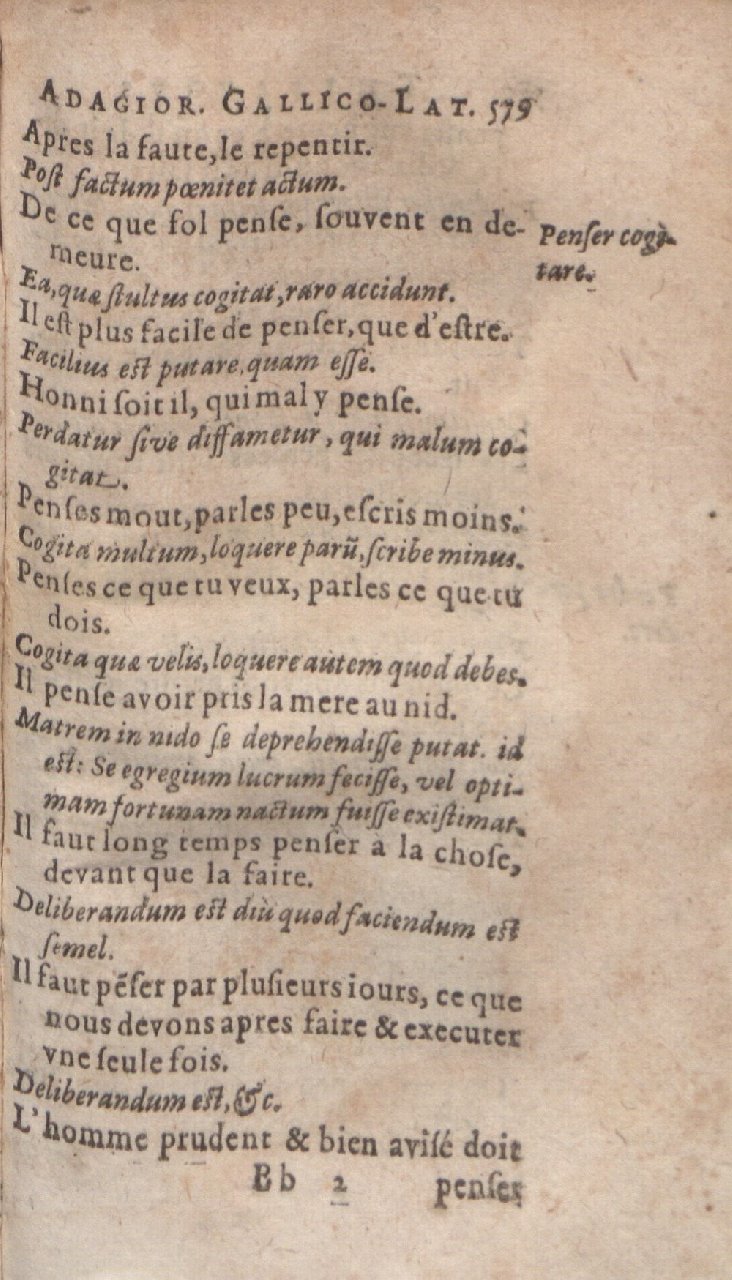 ADAGIOR. GALLICO-LAT. 579
Apres la faute, le repentir.
Poſt factum pœnitet actum.
De ce que fol penſe, ſouvent en de-
meure.
Penſer cogi-
tare.
Ea, quæ ſtultus cogitat, raro accidunt.
Il eſt plus facile de penſer, que d'eſtre.
Facilius eſt putare, quam eſſe.
Honni ſoit il, qui mal y penſe.
Perdatur ſive diffametur, qui malum co-
gitat.
Penſes mout, parles peu, eſcris moins.
Cogita multum, loquere parū, ſcribe minus.
Penſes ce que tu veux, parles ce que tu
dois.
Cogita quæ velis, loquere autem quod debes.
Il penſe avoir pris la mere au nid.
Matrem in nido ſe deprehendiſſe putat. id
eſt: Se egregium lucrum feciſſe, vel opti-
mam fortunam nactum fuiſſe exiſtimat.
Il faut long temps penſer a la choſe,
devant que la faire.
Deliberandum eſt diù quod faciendum eſt
ſemel.
Il faut pēſer par pluſieurs iours, ce que
nous devons apres faire & executer
vne ſeule fois.
Deliberandum eſt, &c.
L'homme prudent & bien aviſé doit
Bb 2 penſer